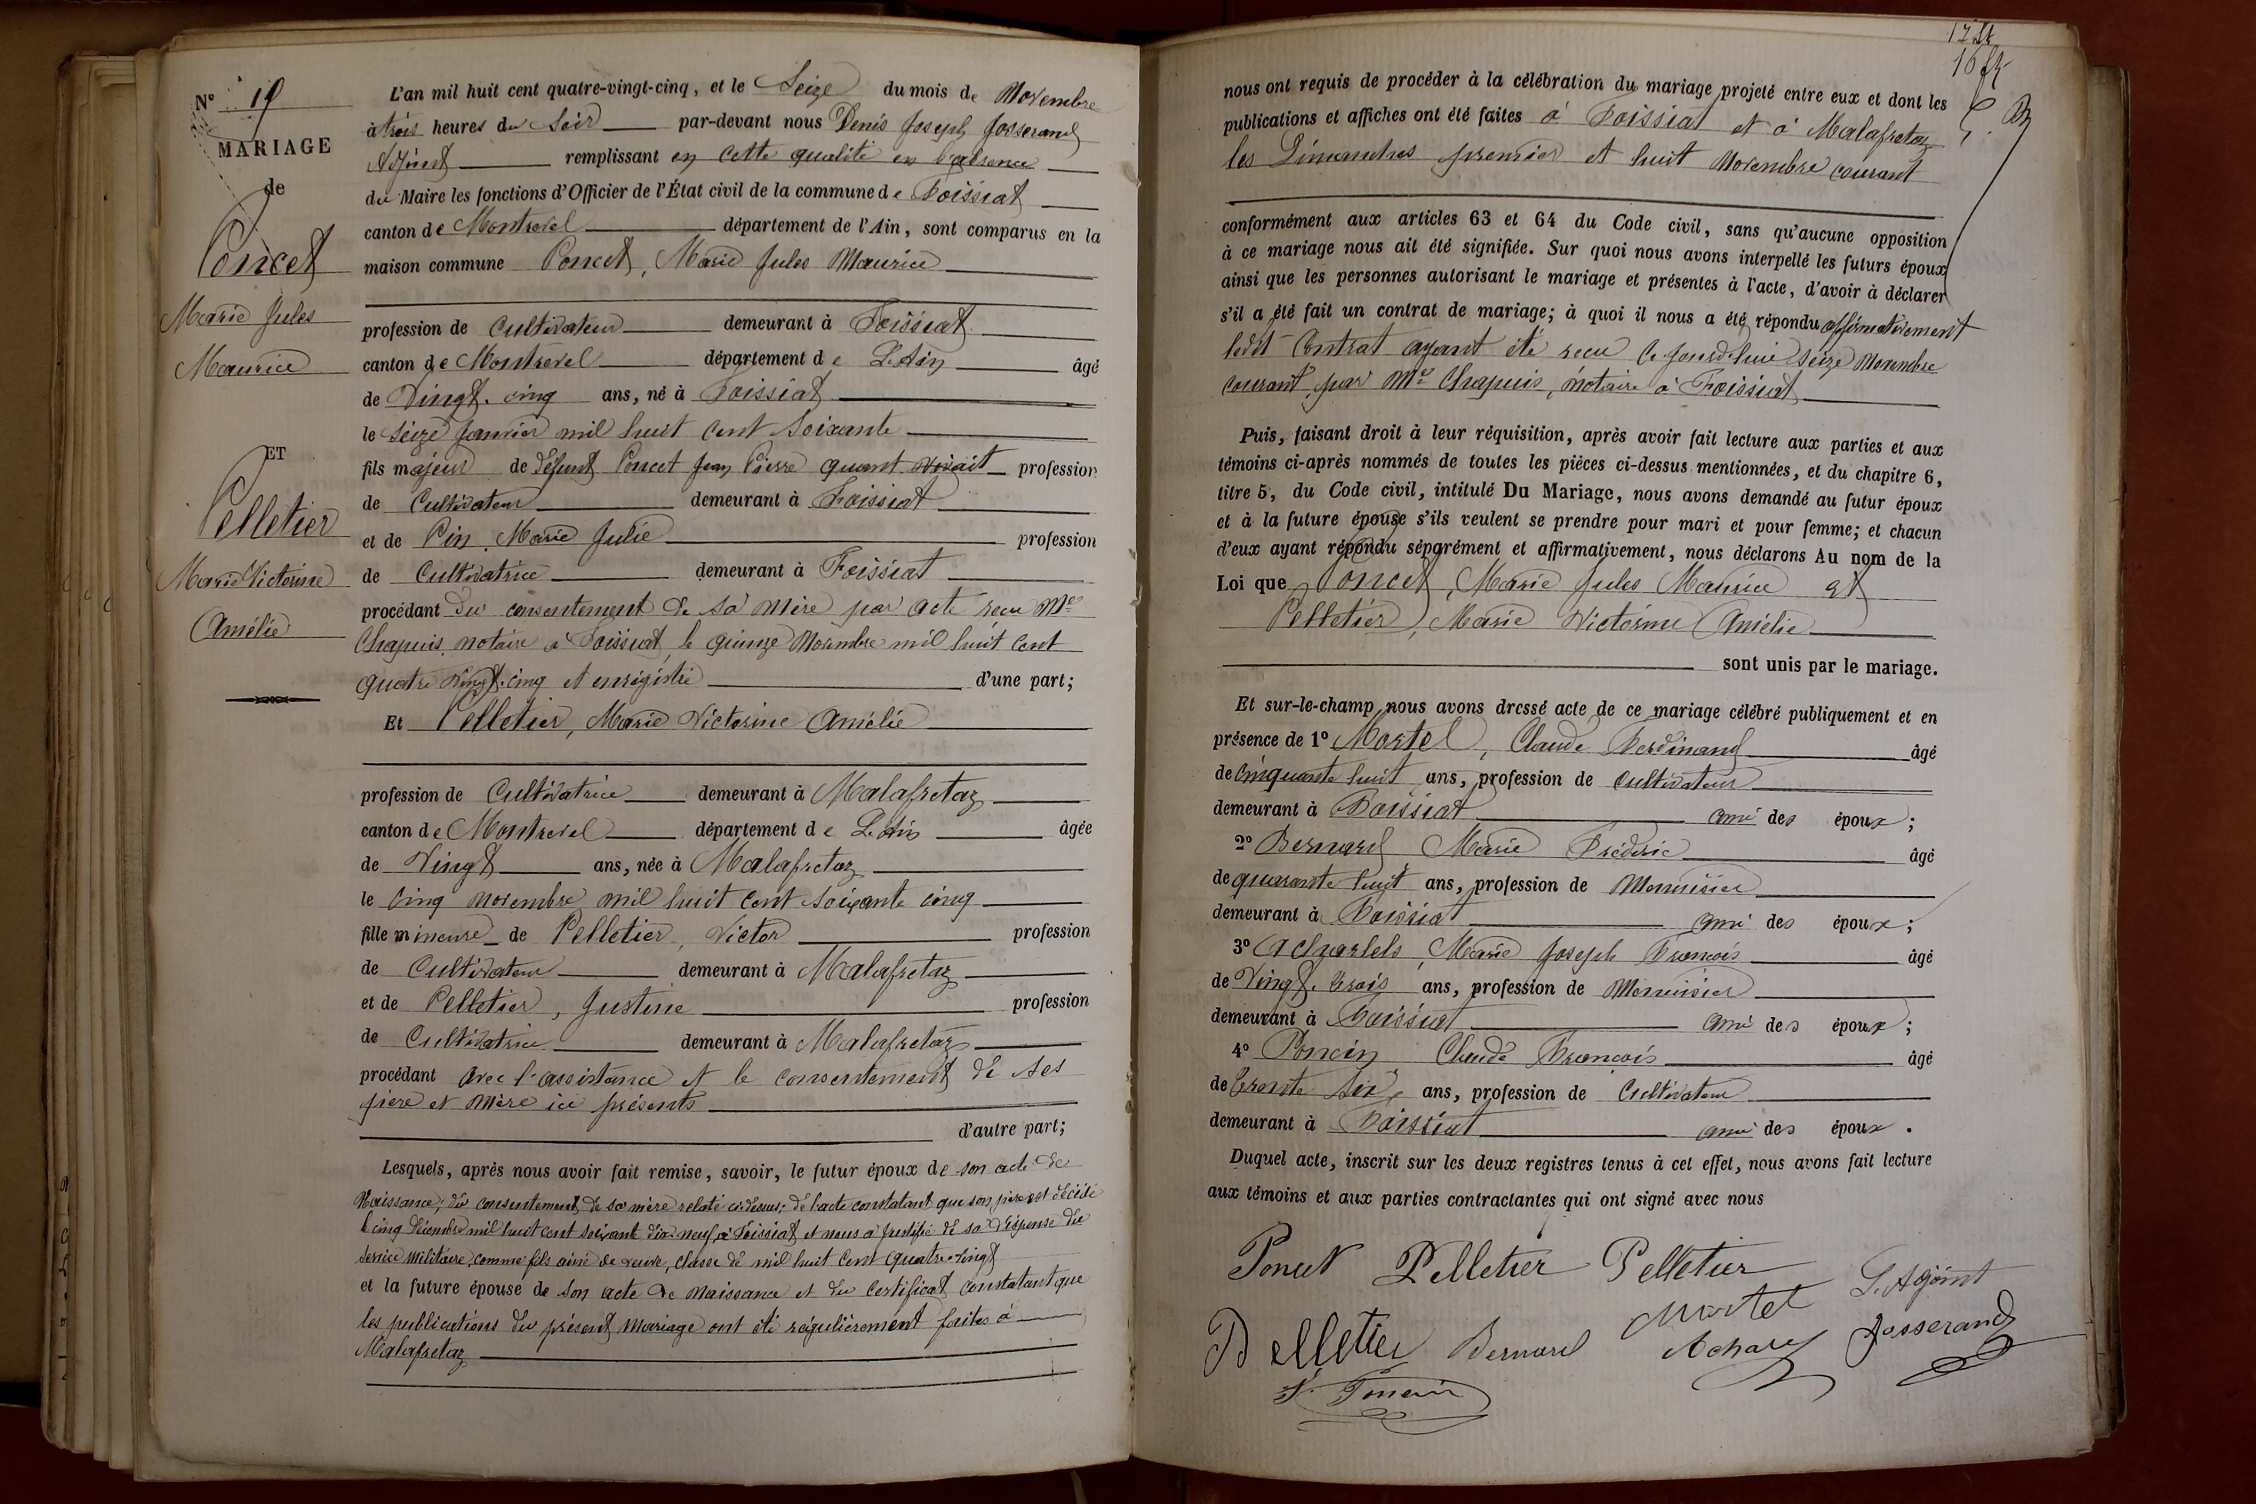 N° 19
MARIAGE
de
Poncet
Marie Jules
Maurice
ET
Pelletier
Marie Victorine
Amélie
L'an mil huit cent quatre-vingt-cinq, et le Seize du mois de Novembre
à trois heures du Soir par-devant nous Denis Joseph Josserand
Adjoint remplissant en cette qualité en l'absence
du Maire les fonctions d'Officier de l'État civil de la commune de Foissiat
canton de Montrevel département de l'Ain, sont comparus en la
maison commune Poncet, Marie Jules Maurice
profession de Cultivateur demeurant à Foissiat
canton de Montrevel département de L'Ain âgé
de Vingt-cinq ans, né à Foissiat
le Seize Janvier mil huit cent soixante
fils majeur de défunt Poncet Jean Pierre quant vivait profession
de Cultivateur demeurant à Foissiat
et de Pin, Marie Julie profession
de Cultivatrice demeurant à Foissiat
procédant du consentement de sa mère par acte reçu Me
Chapuis, notaire à Foissiat, le quinze Novembre mil huit cent
quatre vingt-cinq et enregistré d'une part;
Et Pelletier, Marie Victorine Amélie
profession de Cultivatrice demeurant à Malafretaz
canton de Montrevel département de L'Ain âgée
de Vingt ans, née à Malafretaz
le cinq novembre mil huit cent soixante cinq
fille mineure de Pelletier, Victor profession
de Cultivateur demeurant à Malafretaz
et de Pelletier, Justine profession
de Cultivatrice demeurant à Malafretaz
procédant avec l'assistance et le consentement de ses
père et mère ici présents
d'autre part;
Lesquels, après nous avoir fait remise, savoir, le futur époux de son acte de
Naissance; du consentement de sa mère relaté ci-dessus; de l'acte constatant que son père est décédé
le cinq décembre mil huit cent soixante dix-neuf à Foissiat et nous a justifié de sa dispense du
service militaire, comme fils aîné de veuve, classe de mil huit cent quatre-vingt
et la future épouse de son acte de naissance et du certificat constatant que
les publications du présent mariage ont été régulièrement faites à
Malafretaz
nous ont requis de procéder à la célébration du mariage projeté entre eux et dont les
publications et affiches ont été faites à Foissiat et à Malafretaz
les Dimanches premier et huit Novembre courant
conformément aux articles 63 et 64 du Code civil, sans qu'aucune opposition
à ce mariage nous ait été signifiée. Sur quoi nous avons interpellé les futurs époux
ainsi que les personnes autorisant le mariage et présentes à l'acte, d'avoir à déclarer
s'il a été fait un contrat de mariage; à quoi il nous a été répondu affirmativement
ledit Contrat ayant été reçu ce jourd'hui seize Novembre
courant, par Me Chapuis, notaire à Foissiat
Puis, faisant droit à leur réquisition, après avoir fait lecture aux parties et aux
témoins ci-après nommés de toutes les pièces ci-dessus mentionnées, et du chapitre 6,
titre 5, du Code civil, intitulé Du Mariage, nous avons demandé au futur époux
et à la future épouse s'ils veulent se prendre pour mari et pour femme; et chacun
d'eux ayant répondu séparément et affirmativement, nous déclarons Au nom de la
Loi que Poncet, Marie Jules Maurice et
Pelletier, Marie Victorine Amélie
sont unis par le mariage.
Et sur-le-champ nous avons dressé acte de ce mariage célébré publiquement et en
présence de 1° Martel, Claude Ferdinand âgé
de cinquante huit ans, profession de cultivateur
demeurant à Foissiat ami des époux;
2° Bernard Marie Frédéric âgé
de quarante huit ans, profession de Menuisier
demeurant à Foissiat ami des époux;
3° Marie Joseph François âgé
de Vingt-trois ans, profession de Menuisier
demeurant à Foissiat ami des époux;
4° Poncin Claude François âgé
de trente six ans, profession de Cultivateur
demeurant à Foissiat ami des époux.
Duquel acte, inscrit sur les deux registres tenus à cet effet, nous avons fait lecture
aux témoins et aux parties contractantes qui ont signé avec nous
Poncet Pelletier Pelletier
Martel L'Adjoint
Pelletier Bernard Achard Josserand
Poncin